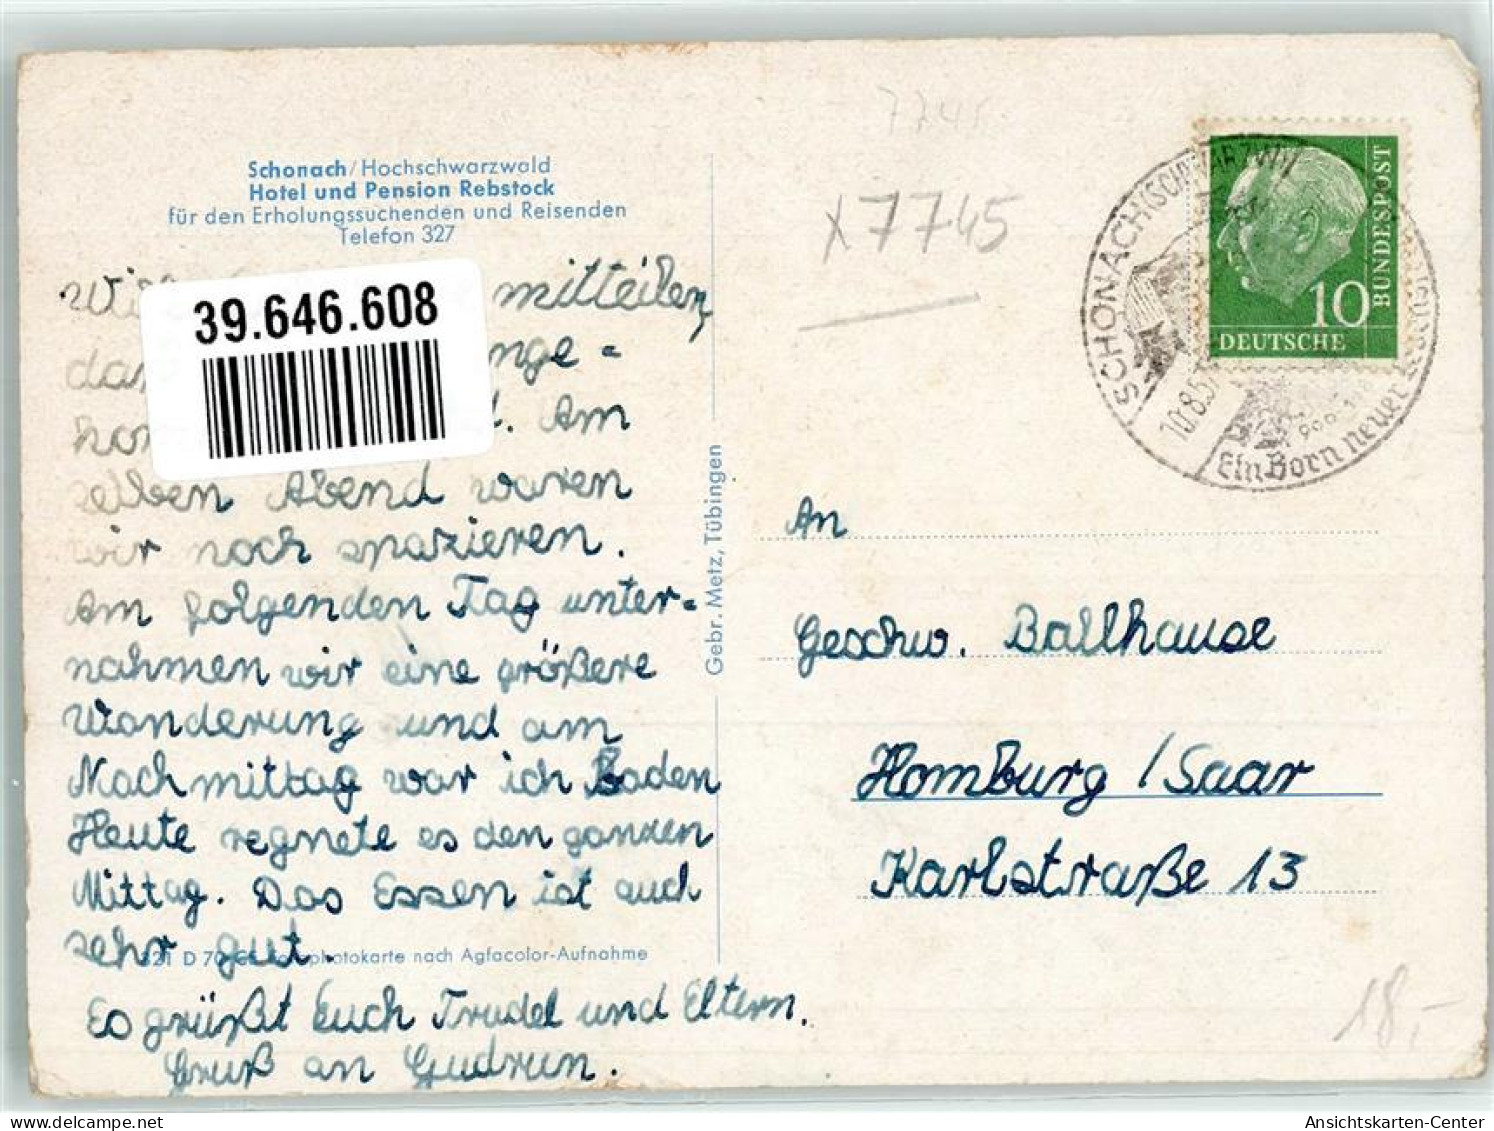 Schonach/Hochschwarzwald
Hotel und Pension Rebstock
für den Erholungssuchenden und Reisenden
Telefon 327
39.646.608
mitteilen,
nge=
Am
selben Abend waren
wir noch spazieren.
Am folgenden Tag unter=
nahmen wir eine größere
Wanderung und am
Nachmittag war ich Baden
Heute regnete es den ganzen
Mittag. Das Essen ist auch
sehr gut.
321 D 70 photokarte nach Agfacolor-Aufnahme
Es grüßt Euch Trudel und Eltern.
Gruß an Gudrun.
Gebr. Metz, Tübingen
7745
x7745
SCHONACH (SCHWARZW)
10.8.5
Ein Born neuer
10
DEUTSCHE
BUNDESPOST
An
Geschw. Ballhause
Homburg / Saar
Karlstraße 13
18,-
Ansichtskarten-Center